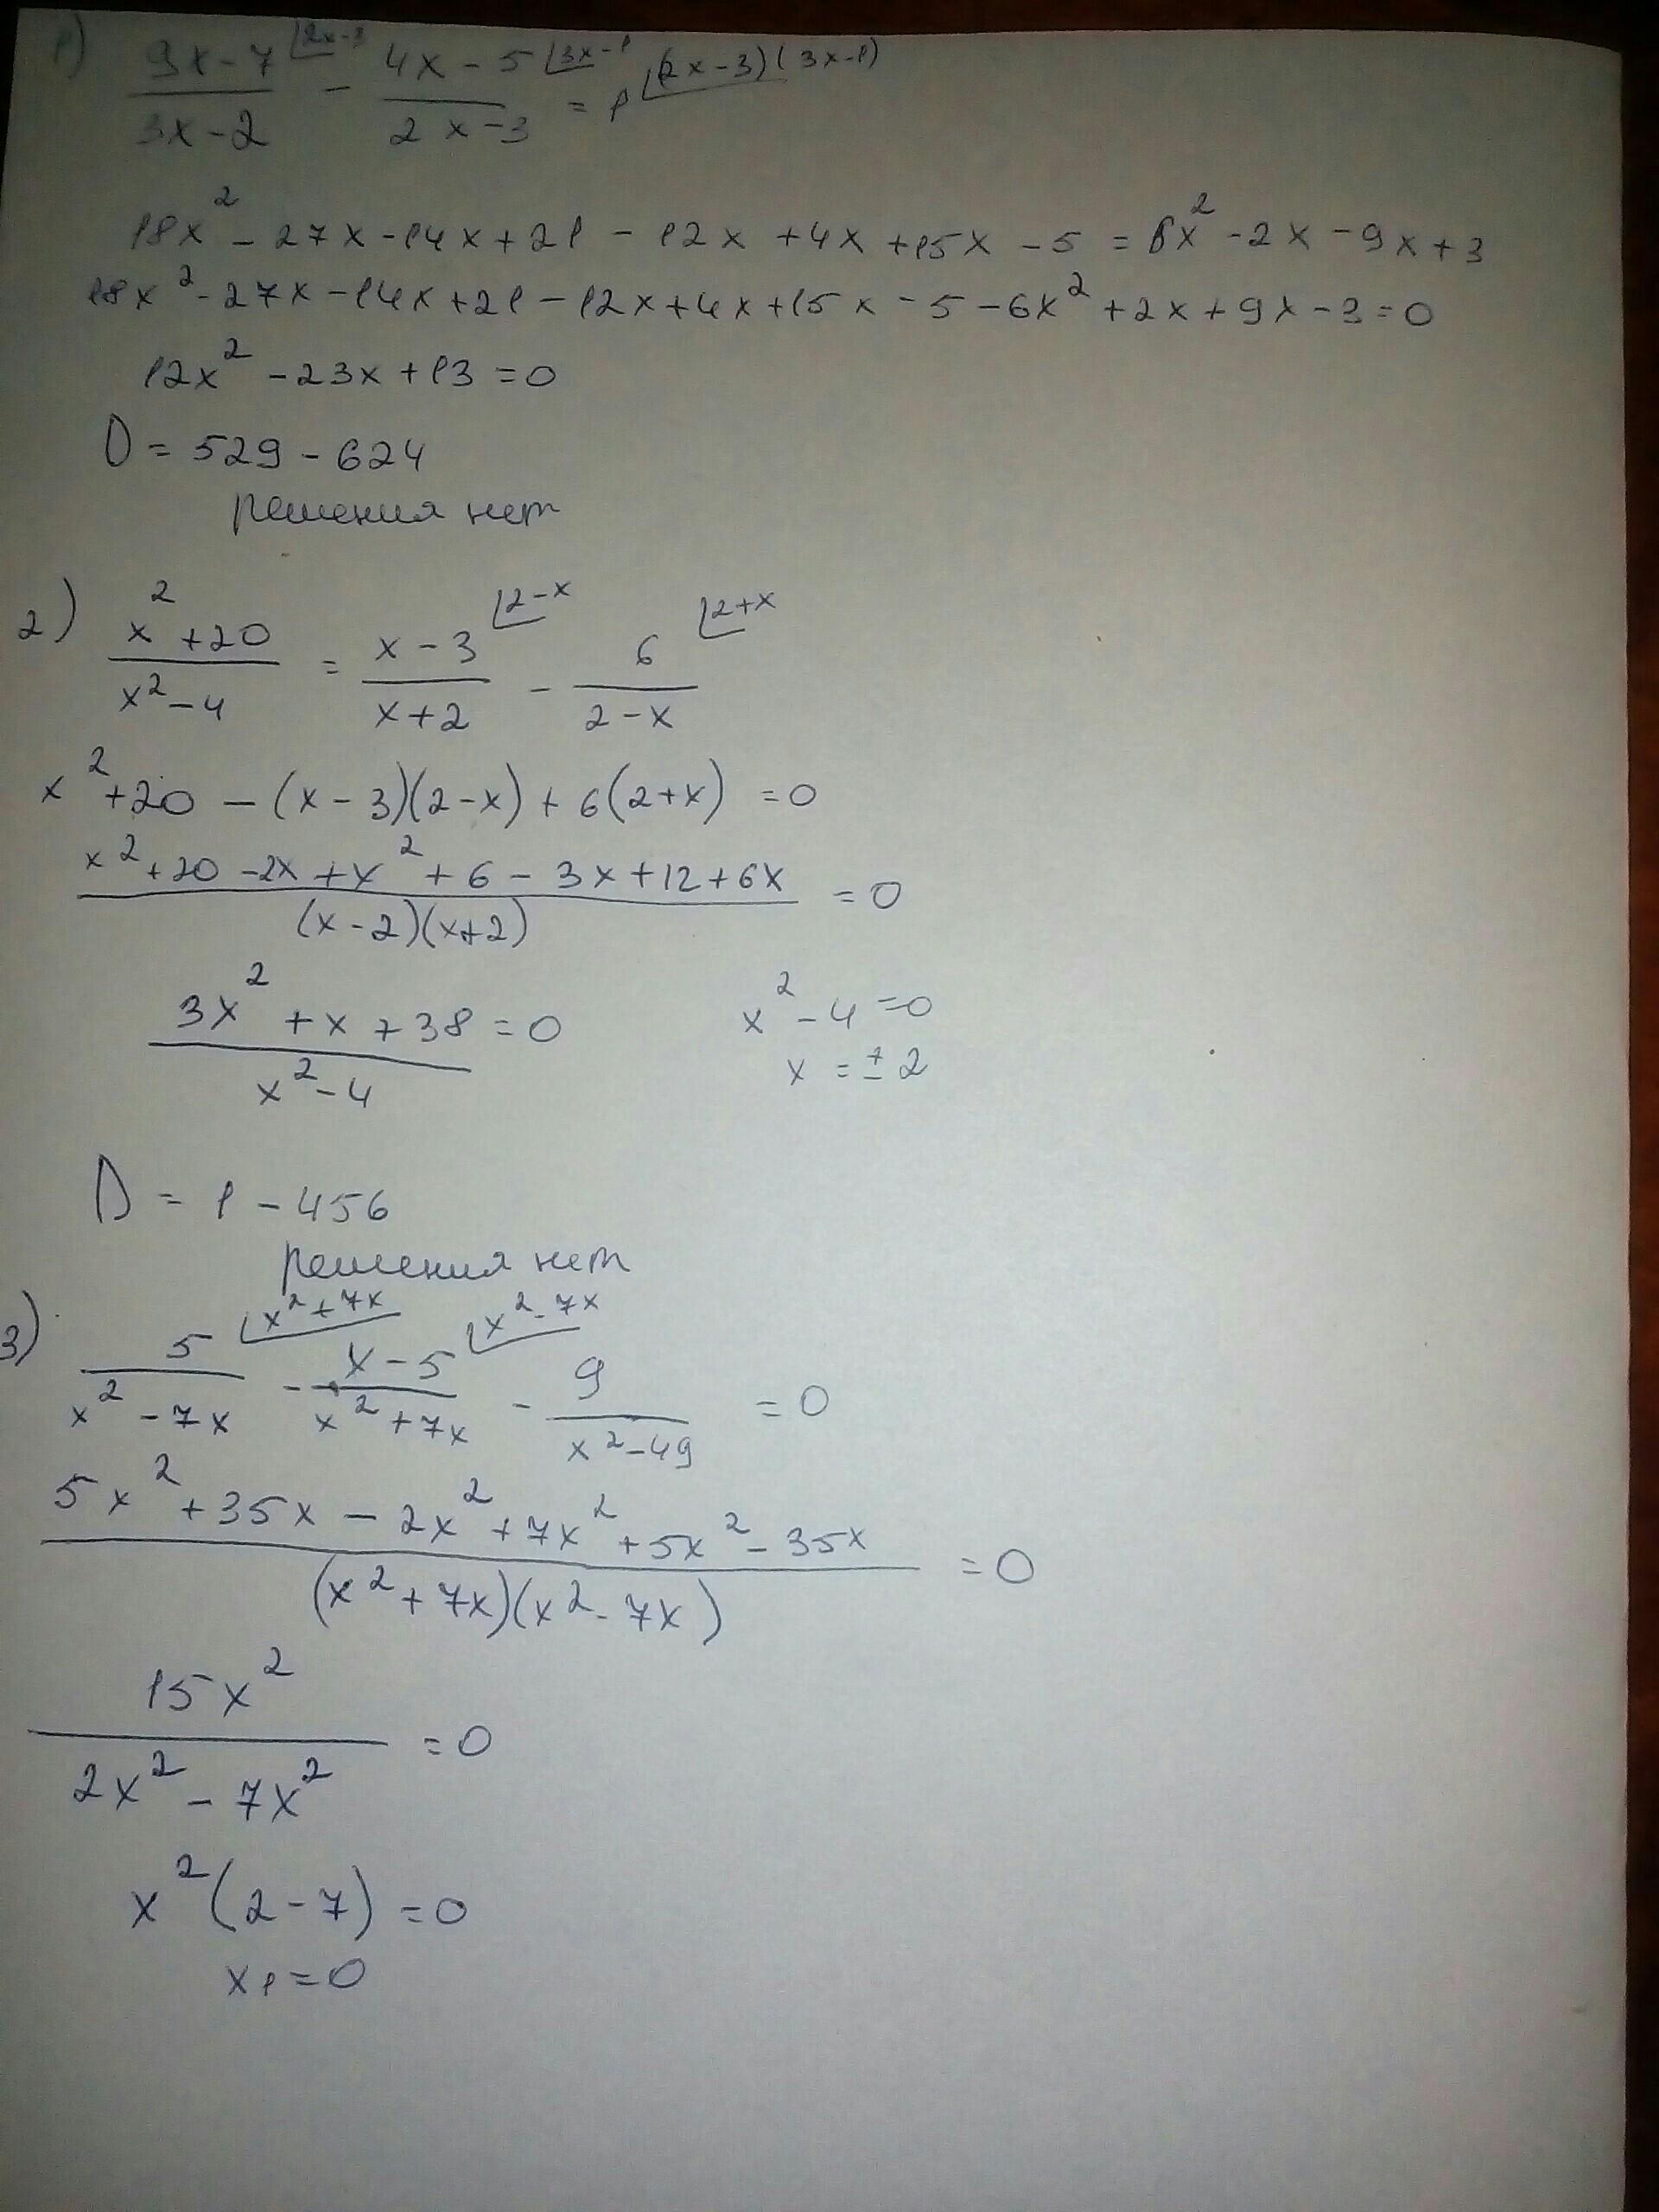 1) (9x-7)/(3x-2) ⌊2x-3 - (4x-5)/(2x-3) ⌊3x-1 = 1 ⌊(2x-3)(3x-1)
18x² - 27x - 14x + 21 - 12x + 4x + 15x - 5 = 6x² - 2x - 9x + 3
18x² - 27x - 14x + 21 - 12x + 4x + 15x - 5 - 6x² + 2x + 9x - 3 = 0
12x² - 23x + 13 = 0
D = 529 - 624
решения нет
2) (x² + 20)/(x² - 4) = (x-3)/(x+2) ⌊2-x - 6/(2-x) ⌊2+x
x² + 20 - (x-3)(2-x) + 6(2+x) = 0
(x² + 20 - 2x + x² + 6 - 3x + 12 + 6x)/((x-2)(x+2)) = 0
(3x² + x + 38)/(x² - 4) = 0
x² - 4 = 0
x = ± 2
D = 1 - 456
решения нет
3) 5/(x² - 7x) ⌊x² + 7x - (x-5)/(x² + 7x) ⌊x² - 7x - 9/(x² - 49) = 0
(5x² + 35x - 2x² + 7x² + 5x² - 35x)/((x² + 7x)(x² - 7x)) = 0
15x²/(2x² - 7x²) = 0
x²(2-7) = 0
x₁ = 0